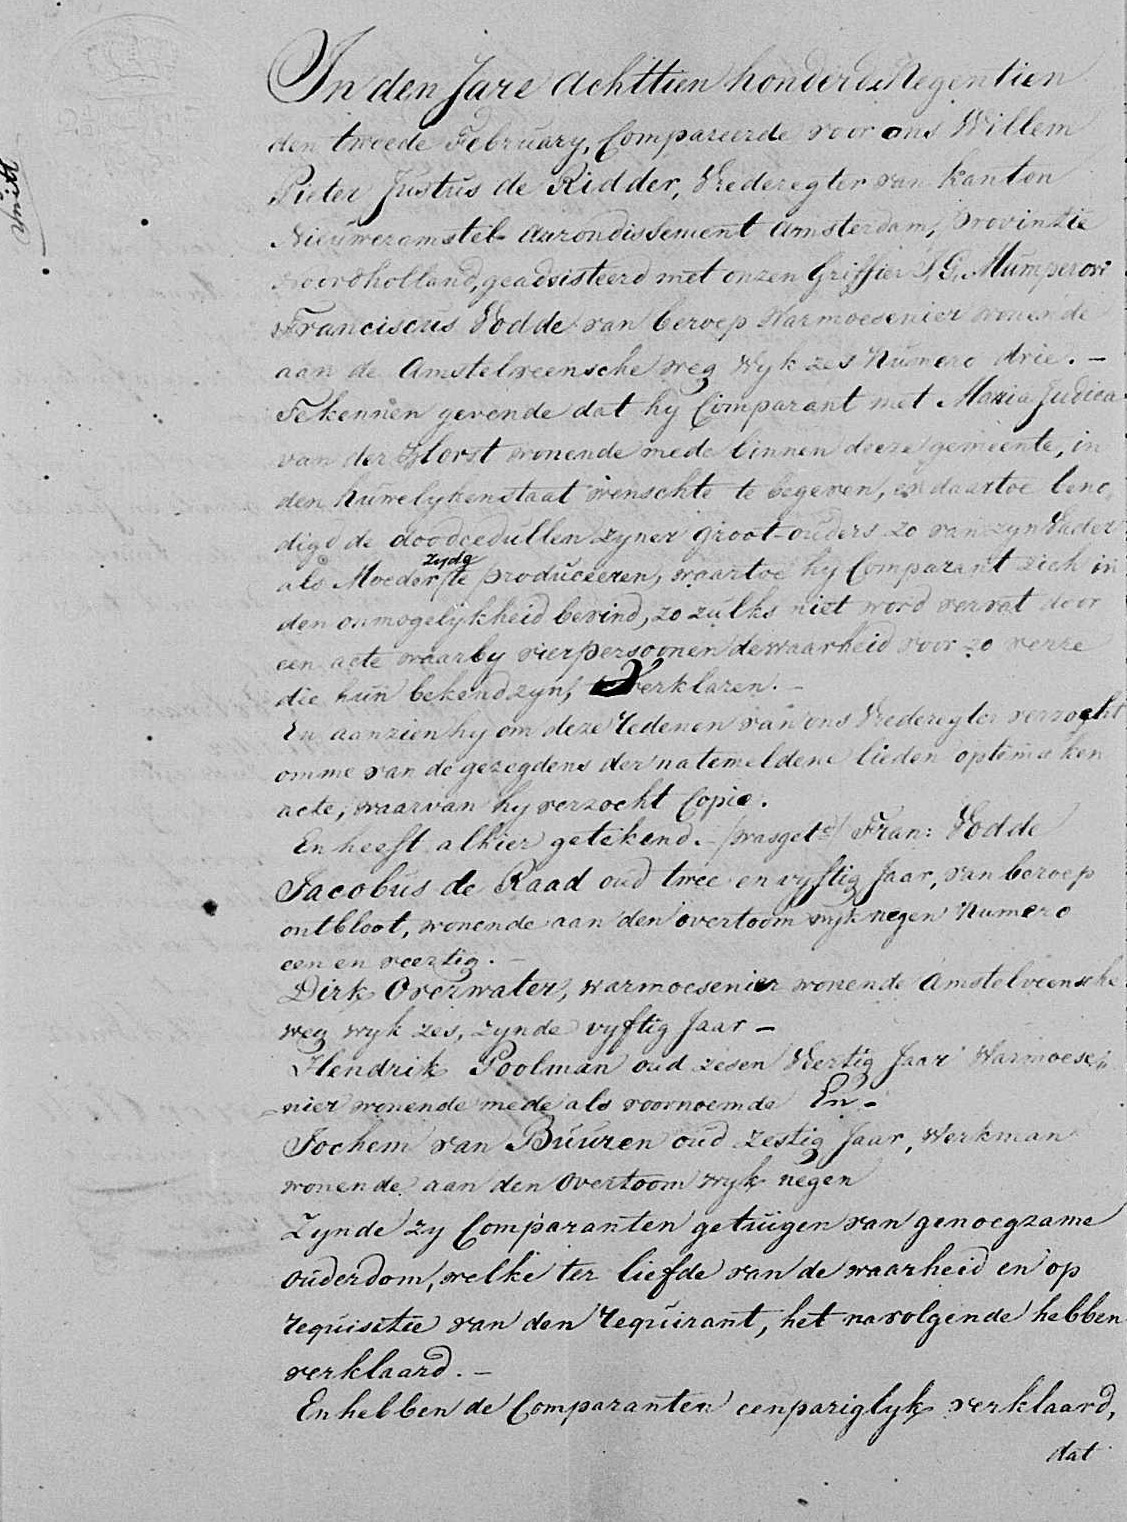 In den Jare Achttien honderd Negentien
den tweede February, Compareerde voor ons Willem
Pieter Justus de Ridder, Vrederegter van kanton
Nieuweramstel Aurondissement Amsterdam, provintie
noordholland, geadsisteerd met onzen Griffier I, G, Mumper ovi
Franciscus Vodde van beroep Warmoesenier wonende
aan de Amstelveensche weg Wyk zes Numero drie. -
Te kennen gevende dat hy Comparant met Maria Judica
van der Horst wonende mede binnen deeze gemeente, in
den huwelyken staat wenschte te begeven, en daartoe beno,
digd de doodcedullen zyner groot-ouders zo van zyn Vader
als Moeder zyde te produceeren, waartoe hy Comparant zich in
den onmogelykheid bevind, zo zulks niet word vervat door
een acte waarby vier persoonen de waarheid voor zo verre
die hun bekend zyn, Verklaren. -
En aanzien hy om deze redenen van ons Vrederegter verzocht
omme van de gezegdens der natemeldene lieden optemaken
acte, waarvan hy verzocht Copie.
En heeft alhier getekend. - /was getd/ Fran: Vodde
Jacobus de Raad oud twee en vyftig Jaar, van beroep
ontbloot, wonende aan den overtoom wyk negen Numero
een en veertig. -
Dirk Overwater, warmoesenier wonende Amstelveensche
weg wyk zes, zynde vyftig Jaar -
Hendrik Poolman oud zesen Veertig Jaar Warmoese,,
nier wonende mede als voornoemde En -
Jochem van Buuren oud zestig Jaar, Werkman
wonende aan den Overtoom wyk negen
Zynde zy Comparanten getuigen van genoegzame
Ouderdom, welke ter liefde van de waarheid en op
requisitie van den requirant, het navolgende hebben
verklaard. -
En hebben de Comparanten eenpariglyk verklaard,
dat